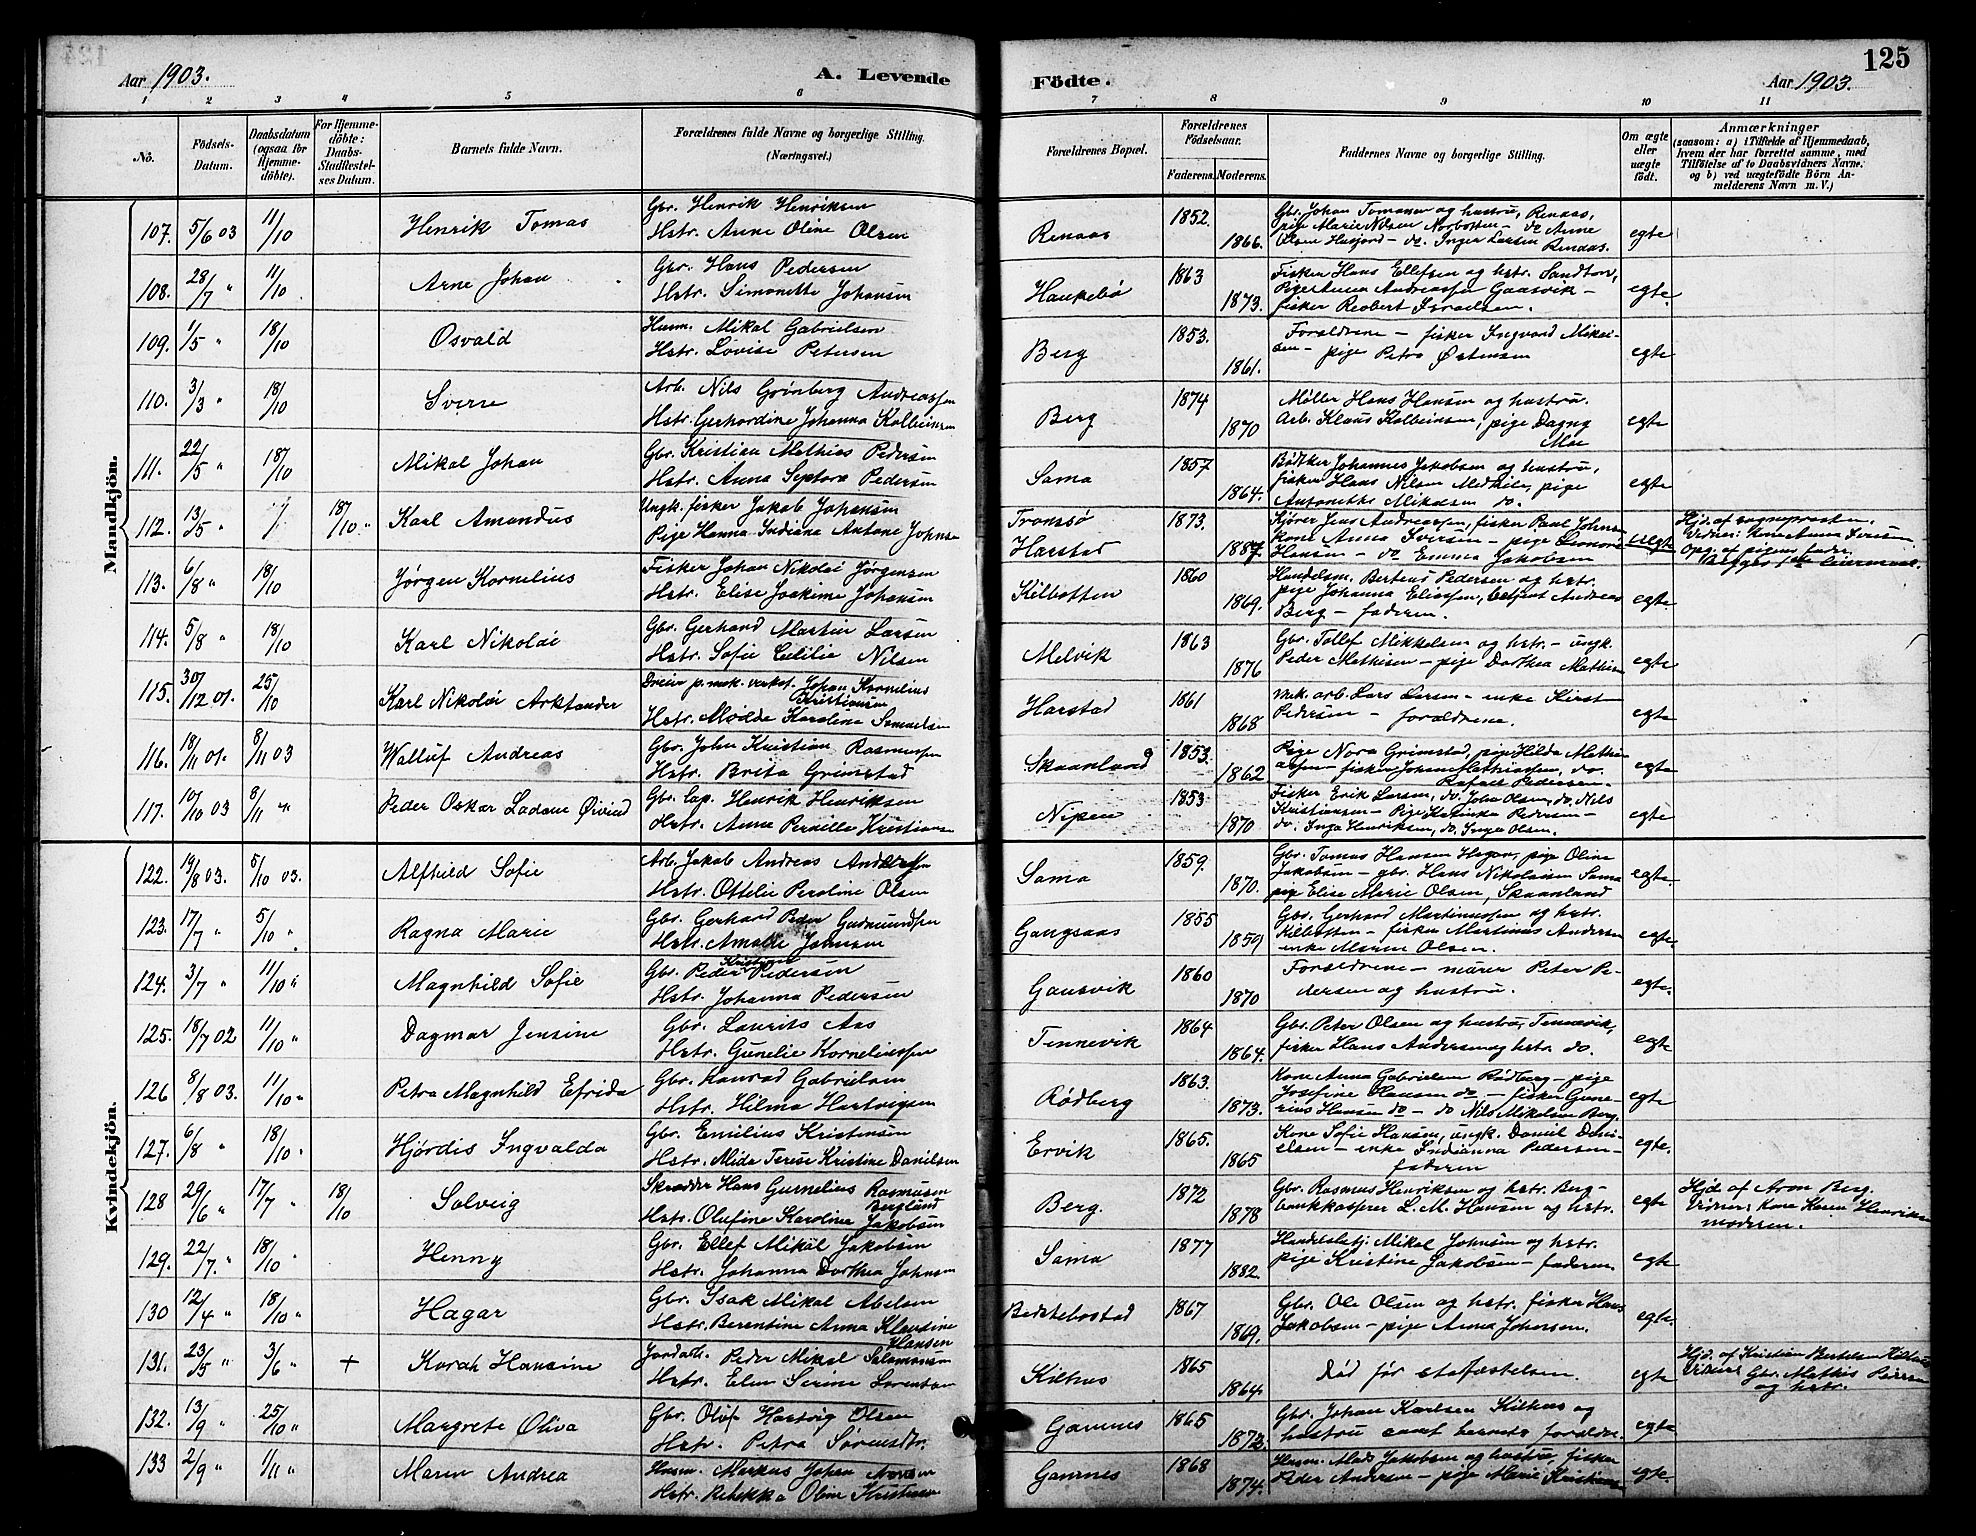 Aar 1903.
A. Levende
Födte.
Aar 1903.
125
1 2 3 4 5 6 7 8 9 10 11
No.
Födsels-Datum.
Daabsdatum (ogsaa for Hjemme-döbte).
For Hjemme-döbte: Daabs-Stadfæstel-ses Datum.
Barnets fulde Navn.
Forældrenes fulde Navne og borgerlige Stilling. (Næringsvei.)
Forældrenes Bopæl.
Forældrenes Födselsaar.
Faderens. Moderens.
Faddernes Navne og borgerlige Stilling.
Om ægte eller uægte födt.
Anmærkninger
(saasom: a) i Tilfælde af Hjemmedaab, hvem der har forrettet samme, med Tilföielse af to Daabsvidners Navne, og b) ved uægtefödte Börn An-melderens Navn m. V.)
Mandkjön.
107. 5/6 03 11/10 Henrik Tomas Gbr. Henrik Henriksen
Hstr. Anne Oline Olsen Renaas 1852. 1866. Gbr. Johan Tomassen og hustru, Renaas,
pige Marie Nilsen Norbotten - do Anne
Olsen Husjord - do. Inger Larsen Renaas. egte
108. 28/7 " 11/10 Arne Johan Gbr. Hans Pedersen
Hstr. Simonette Johansen Haukebø 1863 1873. Fisker Hans Ellefsen og hstr. Sandtorv,
Pige Anna Andreassen Gaasvik -
fisker Reobert Israelsen. egte.
109. 1/5 " 18/10 Osvald Husm. Mikal Gabrielsen
Hstr. Lovise Petersen Berg 1853. 1861. Forældrene - fisker Ingvard Mikal-
sen - pige Petra Østensen egte
110. 3/3 " 18/10 Sverre Arb. Nils Grönberg Andreassen
Hstr. Gerhardine Johanna Kolbeinsen Berg 1874 1870 Møller Hans Hansen og hustru.
Arb. Klaus Kolbeinsen, pige Dagny
Moe egte
111. 22/5 " 18/10 Mikal Johan Gbr. Kristian Mathias Pedersen
Hstr. Anna Septora Pedersen Sama 1857 1864. Bødker Johannes Jakobsen og hustru,
fisker Hans Nilsen Medkile, pige
Antonette Mikalsen do. egte
112. 13/5 " 18/10 " Karl Amandus Ungk. fisker Jakob Johansen
Pige Hanna Indiana Antone Johnsen Tromsø
Harstad 1873. 1887. Kjører Jens Andreassen, fisker Paul Johnsen
kone Anna Iversen - pige Leonore
Hansen - do Emma Jakobsen uegte Hjd. af sognepresten.
Vidner: kone Anna Iversen
Opg. af pigens fader.
Begges 1ste leiermaal.
113. 6/8 " 18/10 Jørgen Kornelius Fisker Johan Nikolai Jørgensen
Hstr. Elise Joakime Johansen Kilbotten 1860 1869. Handelsm. Berteus Pedersen og hstr.
pige Johanna Eliassen, Andreas
Berg - faderen. egte
114. 5/8 " 18/10 Karl Nikolai Gbr. Gerhard Martin Larsen
Hstr. Sofie Cecilie Nilsen Melvik 1863 1876 Gbr. Tollef Mikkelsen og hstr. - ungk.
Peder Mathisen - pige Dorthea Mathisen egte
115. 30/12 01. 25/10 Karl Nikolai Arktander Dreier p. mek. verkst. Johan Kornelius
Kristiansen
Hstr. Modde Karoline Samuelsen Harstad 1861 1868 Mek. arb. Lars Larsen - enke Kirst.
Pedersen - forældrene. egte
116. 18/11 01. 8/11 03 Walluf Andreas Gbr. John Kristian Rasmussen
Hstr. Brita Grimstad Skaanland 1853. 1862 Pige Nora Grimstad, pige Hilda Mathi-
assen - fisker Johan Mathiassen, do.
Rafael Pedersen. egte
117. 10/10 03 8/11 " Peder Oskar Ladane Øivind Gbr. lap. Henrik Henriksen
Hstr. Anne Pernille Kristiansen Nipen 1853 1870 Fisker Erik Larsen, do. John Olsen, do. Nils
Kristiansen - Pige Katinka Pedersen -
do. Inga Henriksen, do. Inga Olsen. egte
Kvindekjön.
122. 19/8 03. 5/10 03. Alfhild Sofie Arb. Jakob Andreas Andersen
Hstr. Ottelie Peroline Olsen Sama 1859. 1870. Gbr. Tomas Hansen Hagan, pige Oline
Jakobsen - gbr. Hans Nikolaisen Sama
pige Elise Marie Olsen, Skaanland egte.
123. 17/7 " 5/10 " Ragna Marie Gbr. Gerhard Peder Gudmundsen
Hstr. Amalie Johnsen Gangsaas 1855 1859 Gbr. Gerhard Martinussen og hstr.
Kilbotten - fisker Martinus Andersen
enke Maren Olsen. egte.
124. 3/7 " 11/10 " Magnhild Sofie Gbr. Peder Kristian Pedersen
Hstr. Johanna Pedersen Gausvik 1860 1870 Forældrene - murer Peter Pe-
dersen og hustru. egte.
125. 18/7 02 11/10 " Dagmar Jensine Gbr. Laurits Aas
Hstr. Gunelie Korneliussen Tennevik 1864 1864. Gbr. Peter Olsen og hustru, Tennevik,
fisker Hans Andersen og hstr. do. egte
126 8/8 03. 11/10 " Petra Magnhild Efrida Gbr. Konrad Gabrielsen
Hstr. Hilma Hartvigsen Rødberg 1863. 1873. Kone Anna Gabrielsen Rødberg - pige
Josefine Hansen do - fisker Gune-
rius Hansen do - do Nils Mikalsen Berg. egte
127. 6/8 " 18/10 " Hjørdis Ingvalda Gbr. Emilius Kristensen
Hstr. Mida Terese Kristine Danielsen Ervik 1865. 1865 Kone Sofie Hansen, ungk. Daniel Dani-
elsen - enke Indianna Pedersen -
faderen egte.
128 29/6 " 17/7 " 18/10 Solveig Skrædder Hans Gurnelius Rasmusen
Berglund
Hstr. Olufine Karoline Jakobsen Berg. 1872 1878 Gbr. Rasmus Henriksen og hstr. Berg -
bankkasserer L. M. Hansen og hstr. egte Hjd. af Aron Berg.
Vidner: kone Karen Henriksen
moderen.
129. 22/7 " 18/10 " Henny Gbr. Ellef Mikal Jakobsen
Hstr. Johanna Dorthea Johnsen Sama 1877 1882. Handelsbetj. Mikal Johnsen og hstr.
pige Kristine Jakobsen - faderen egte
130 12/4 " 18/10 " Hagar Gbr. Isak Mikal Abelsen
Hstr. Berentine Anna Klaudine
Hansen Beklebostad 1867 1869. Gbr. Ole Olsen og hstr. fisker Hans
Jakobsen - pige Anna Johansen. egte.
131. 23/5 " 3/6 " + Korah Hansine Jordarb. Peder Mikal Salamonsen
Hstr. Elen Serine Lorentsen Kilhus 1865 1864. Død før stafæstelsen. egte Hjd. af Kristian Bertelsen Kilhus
Vidner: Gbr. Mathis Pedersen
og hstr.
132. 13/9 " 25/10 " Margrete Oliva Gbr. Oluf Hartvig Olsen
Hstr. Petra Sørensdtr. Gamnes 1865 1873. Gbr. Johan Karlsen Kilhus og
hustru samt barnets forældre. egte
133 2/9 " 1/11 " Maren Andrea Husm. Markus Johan
Hstr. Rebekka Oline Kristensen Gamnes 1868 1874. Husm. Mads Jakobsen og hustru, fisker
Peder Andersen - pige Marie Kristiansen egte.